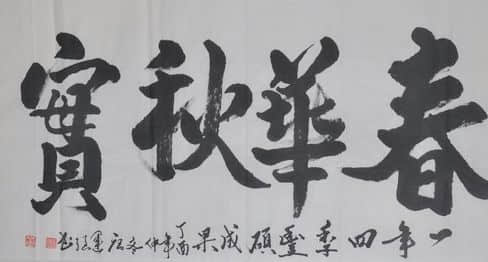 春華秋實
一年四季豐碩成果
丁酉年仲冬